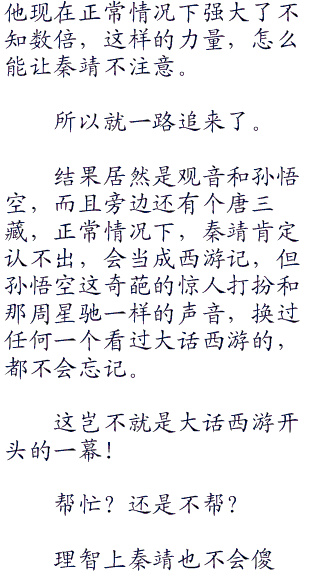 他现在正常情况下强大了不
知数倍，这样的力量，怎么
能让秦靖不注意。
所以就一路追来了。
结果居然是观音和孙悟
空，而且旁边还有个唐三
藏，正常情况下，秦靖肯定
认不出，会当成西游记，但
孙悟空这奇葩的惊人打扮和
那周星驰一样的声音，换过
任何一个看过大话西游的，
都不会忘记。
这岂不就是大话西游开
头的一幕！
帮忙？还是不帮？
理智上秦靖也不会傻